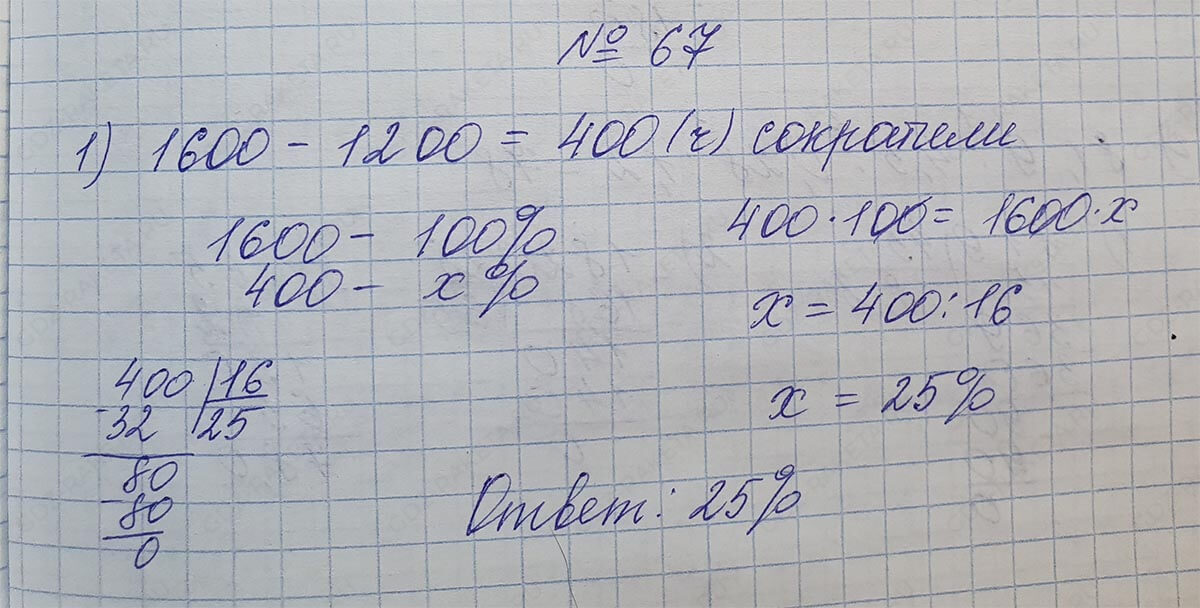 № 67
1) 1600 - 1200 = 400 (ч) сократили
1600 - 100%
400 - x%
400 · 100 = 1600 · x
x = 400 : 16
x = 25%
400 | 16
- 32 | 25
80
- 80
0
Ответ: 25%